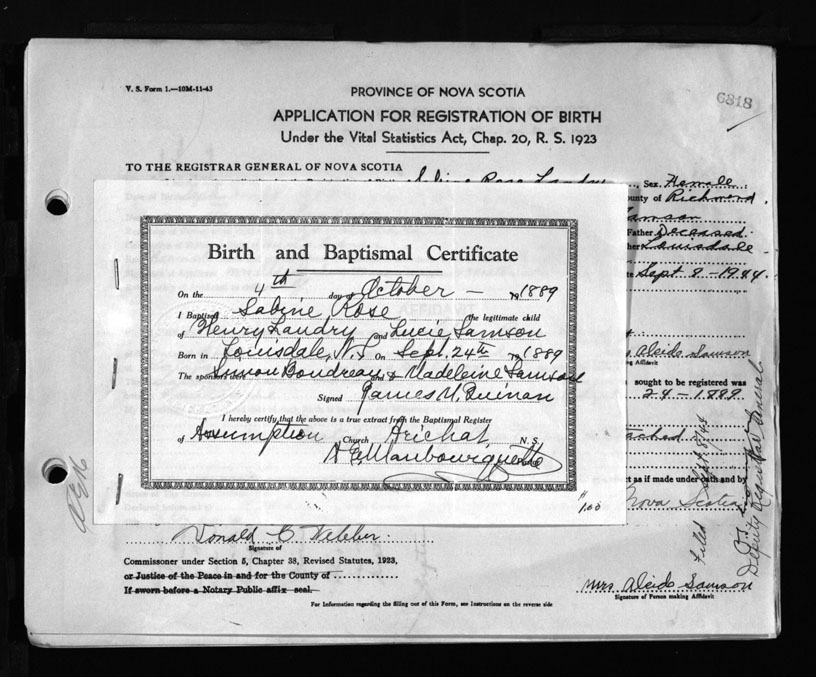 V. S. Form 1.—10M-11-43
PROVINCE OF NOVA SCOTIA
6818
APPLICATION FOR REGISTRATION OF BIRTH
Under the Vital Statistics Act, Chap. 20, R. S. 1923
TO THE REGISTRAR GENERAL OF NOVA SCOTIA
Sabine Rose Landry, Sex Female
County of Richmond
Samson
Father Deceased
Louisdale
Sept 8-1944
Birth and Baptismal Certificate
On the 4th day of October - 19 1889
I Baptised Sabine Rose the legitimate child
of Henry Landry and Lucie Samson
Born in Louisdale, N.S. On Sept. 24th 19 1889
The sponsors were Simon Boudreau & Madeleine Samson
Signed James M. Quinan
I hereby certify that the above is a true extract from the Baptismal Register
of Assumption Church Arichat N. S.
Alcide Samson
making Affidavit
sought to be registered was
24-1889
ttached
ct as if made under oath and by
Nova Scotia
$1.00
Filed Sept. 8/44
Deputy Registrar General
Donald C. Webber
Signature of
Commissioner under Section 5, Chapter 38, Revised Statutes, 1923,
or Justice of the Peace in and for the County of
If sworn before a Notary Public affix seal.
Mrs Alcide Samson
Signature of Person making Affidavit
For Information regarding the filling out of this Form, see Instructions on the reverse side